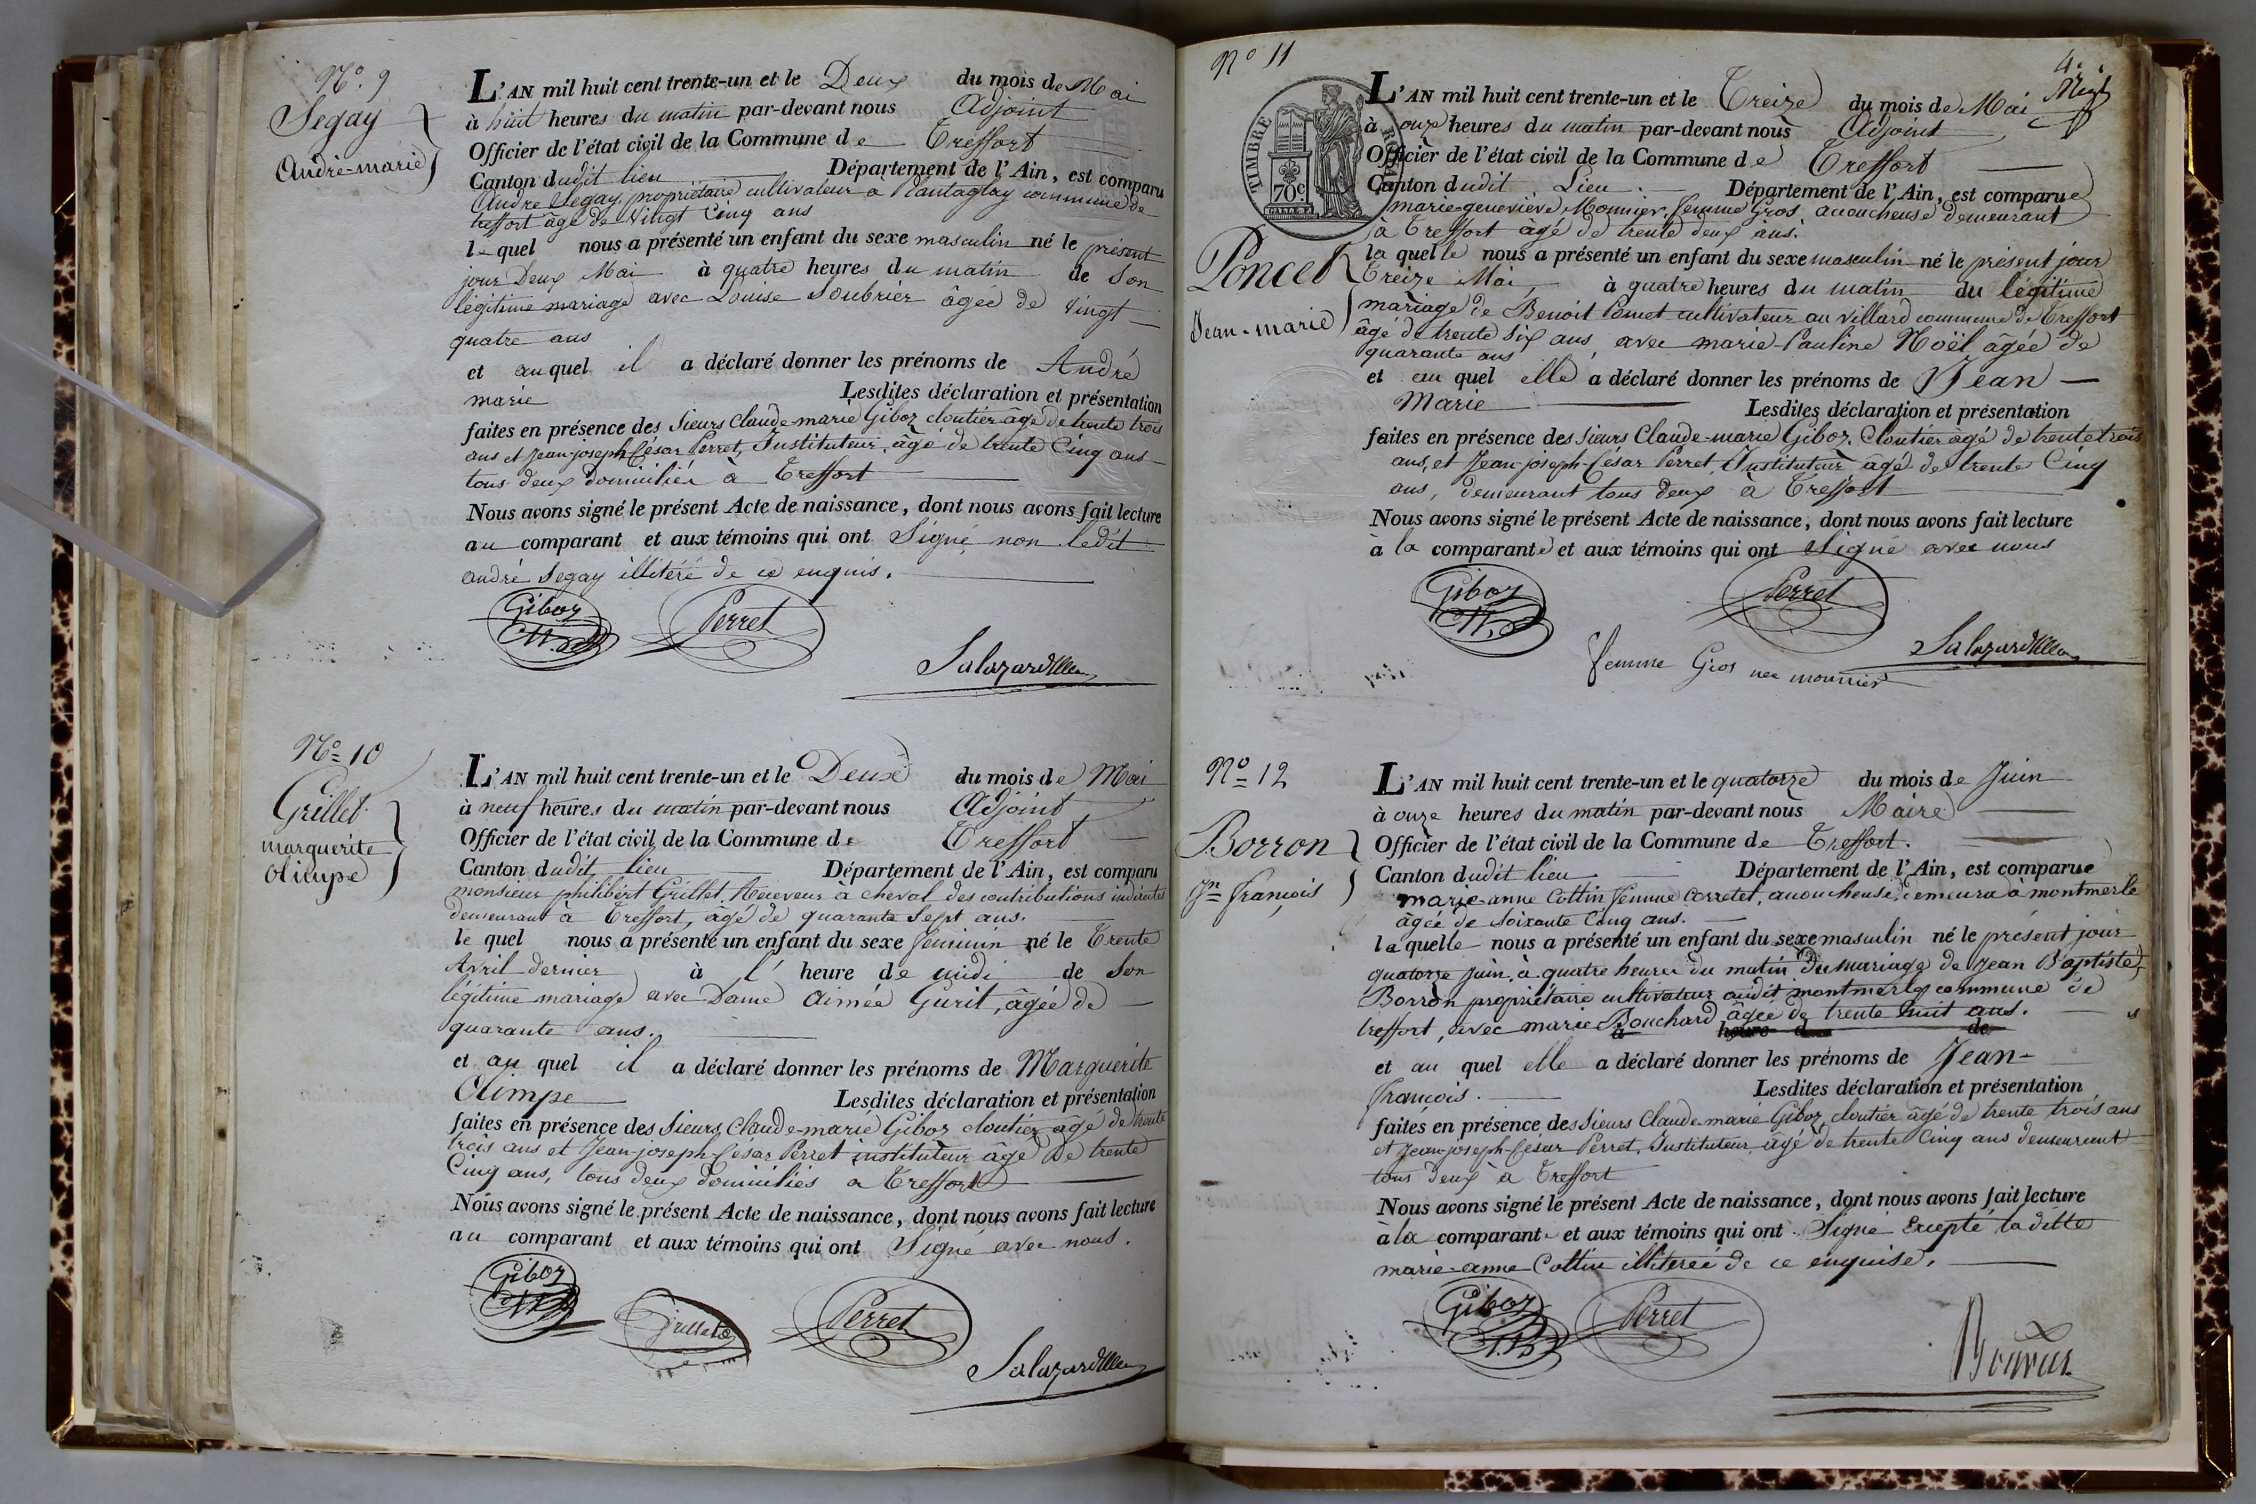 N° 9
Segay
André-marie
L'AN mil huit cent trente-un et le Deux du mois de Mai
à huit heures du matin par-devant nous Adjoint
Officier de l'état civil de la Commune de Treffort
Canton dudit lieu Département de l'Ain, est comparu
André Segay, propriétaire cultivateur à Plantaglay commune de
treffort âgé de vingt cinq ans
lequel nous a présenté un enfant du sexe masculin né le présent
jour Deux Mai à quatre heures du matin de son
légitime mariage avec Louise Soubrier âgée de vingt
quatre ans
et auquel il a déclaré donner les prénoms de André
marie Lesdites déclaration et présentation
faites en présence des Sieurs Claude-marie Giboz cloutier âgé de trente trois
ans et Jean-joseph-César Perret, Instituteur, âgé de trente Cinq ans
tous deux domiciliés à Treffort
Nous avons signé le présent Acte de naissance, dont nous avons fait lecture
au comparant et aux témoins qui ont Signé, non ledit
andré Segay illitéré de ce enquis.
Giboz
Perret
N° 10
Grillet
marguerite
Olimpe
L'AN mil huit cent trente-un et le Deux du mois de Mai
à neuf heures du matin par-devant nous Adjoint
Officier de l'état civil de la Commune de Treffort
Canton dudit lieu Département de l'Ain, est comparu
monsieur philibert Grillet, Receveur à cheval des contributions indirectes
demeurant à Treffort, âgé de quarante Sept ans.
lequel nous a présenté un enfant du sexe féminin né le Trente
Avril dernier à l'heure de midi de Son
légitime mariage avec Dame Aimée Guril, âgée de
quarante ans.
et au quel il a déclaré donner les prénoms de Marguerite
Olimpe Lesdites déclaration et présentation
faites en présence des Sieurs Claude-marie Giboz cloutier âgé de trente
trois ans et Jean-joseph-César Perret instituteur âgé De trente
Cinq ans, tous deux domiciliés à Treffort
Nous avons signé le présent Acte de naissance, dont nous avons fait lecture
au comparant et aux témoins qui ont Signé avec nous.
Giboz
Grillet
Perret
N° 11
4.
TIMBRE ROYAL
70c
Poncet
Jean-marie
L'AN mil huit cent trente-un et le Treize du mois de Mai
à onze heures du matin par-devant nous Adjoint
Officier de l'état civil de la Commune de Treffort
Canton dudit Lieu. Département de l'Ain, est comparue
marie-geneviève Monnier, femme Gros, accoucheuse demeurant
à Treffort âgé de trente deux ans.
la quelle nous a présenté un enfant du sexe masculin né le présent jour
Treize Mai, à quatre heures du matin du légitime
mariage de Benoit Poncet cultivateur au villard commune de Treffort
âgé de trente Six ans, avec marie-Pauline Noël âgée de
quarante ans
et au quel elle a déclaré donner les prénoms de Jean
Marie Lesdites déclaration et présentation
faites en présence des Sieurs Claude-marie Giboz, Cloutier âgé de trente trois
ans, et Jean-joseph-César Perret, Instituteur âgé de trente Cinq
ans, demeurant tous deux à Treffort
Nous avons signé le présent Acte de naissance, dont nous avons fait lecture
à la comparante et aux témoins qui ont Signé avec nous
Giboz
Perret
femme Gros née mounier
N° 12
Borron
Jn françois
L'AN mil huit cent trente-un et le quatorze du mois de Juin
à onze heures du matin par-devant nous Maire
Officier de l'état civil de la Commune de Treffort.
Canton dudit lieu Département de l'Ain, est comparue
marie-anne Cottin femme Corretel, accoucheuse, demeura à montmerle
âgée de Soixante Cinq ans.
laquelle nous a présenté un enfant du sexe masculin né le présent jour
quatorze juin, à quatre heures du matin Du mariage de Jean Baptiste
Borron propriétaire cultivateur audit montmerle commune de
treffort, avec marie Bouchard âgée de trente huit ans.
et au quel elle a déclaré donner les prénoms de Jean-
françois. Lesdites déclaration et présentation
faites en présence des Sieurs Claude-marie Giboz, cloutier âgé de trente trois ans
et Jean-joseph-César Perret, Instituteur, âgé de trente Cinq ans demeurant
tous deux à Treffort
Nous avons signé le présent Acte de naissance, dont nous avons fait lecture
à la comparante et aux témoins qui ont Signé Excepté la ditte
marie-anne Cottin illiterée de ce enquise.
Giboz
Perret